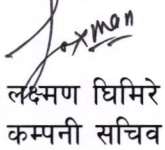 Laxman
लक्ष्मण घिमिरे
कम्पनी सचिव